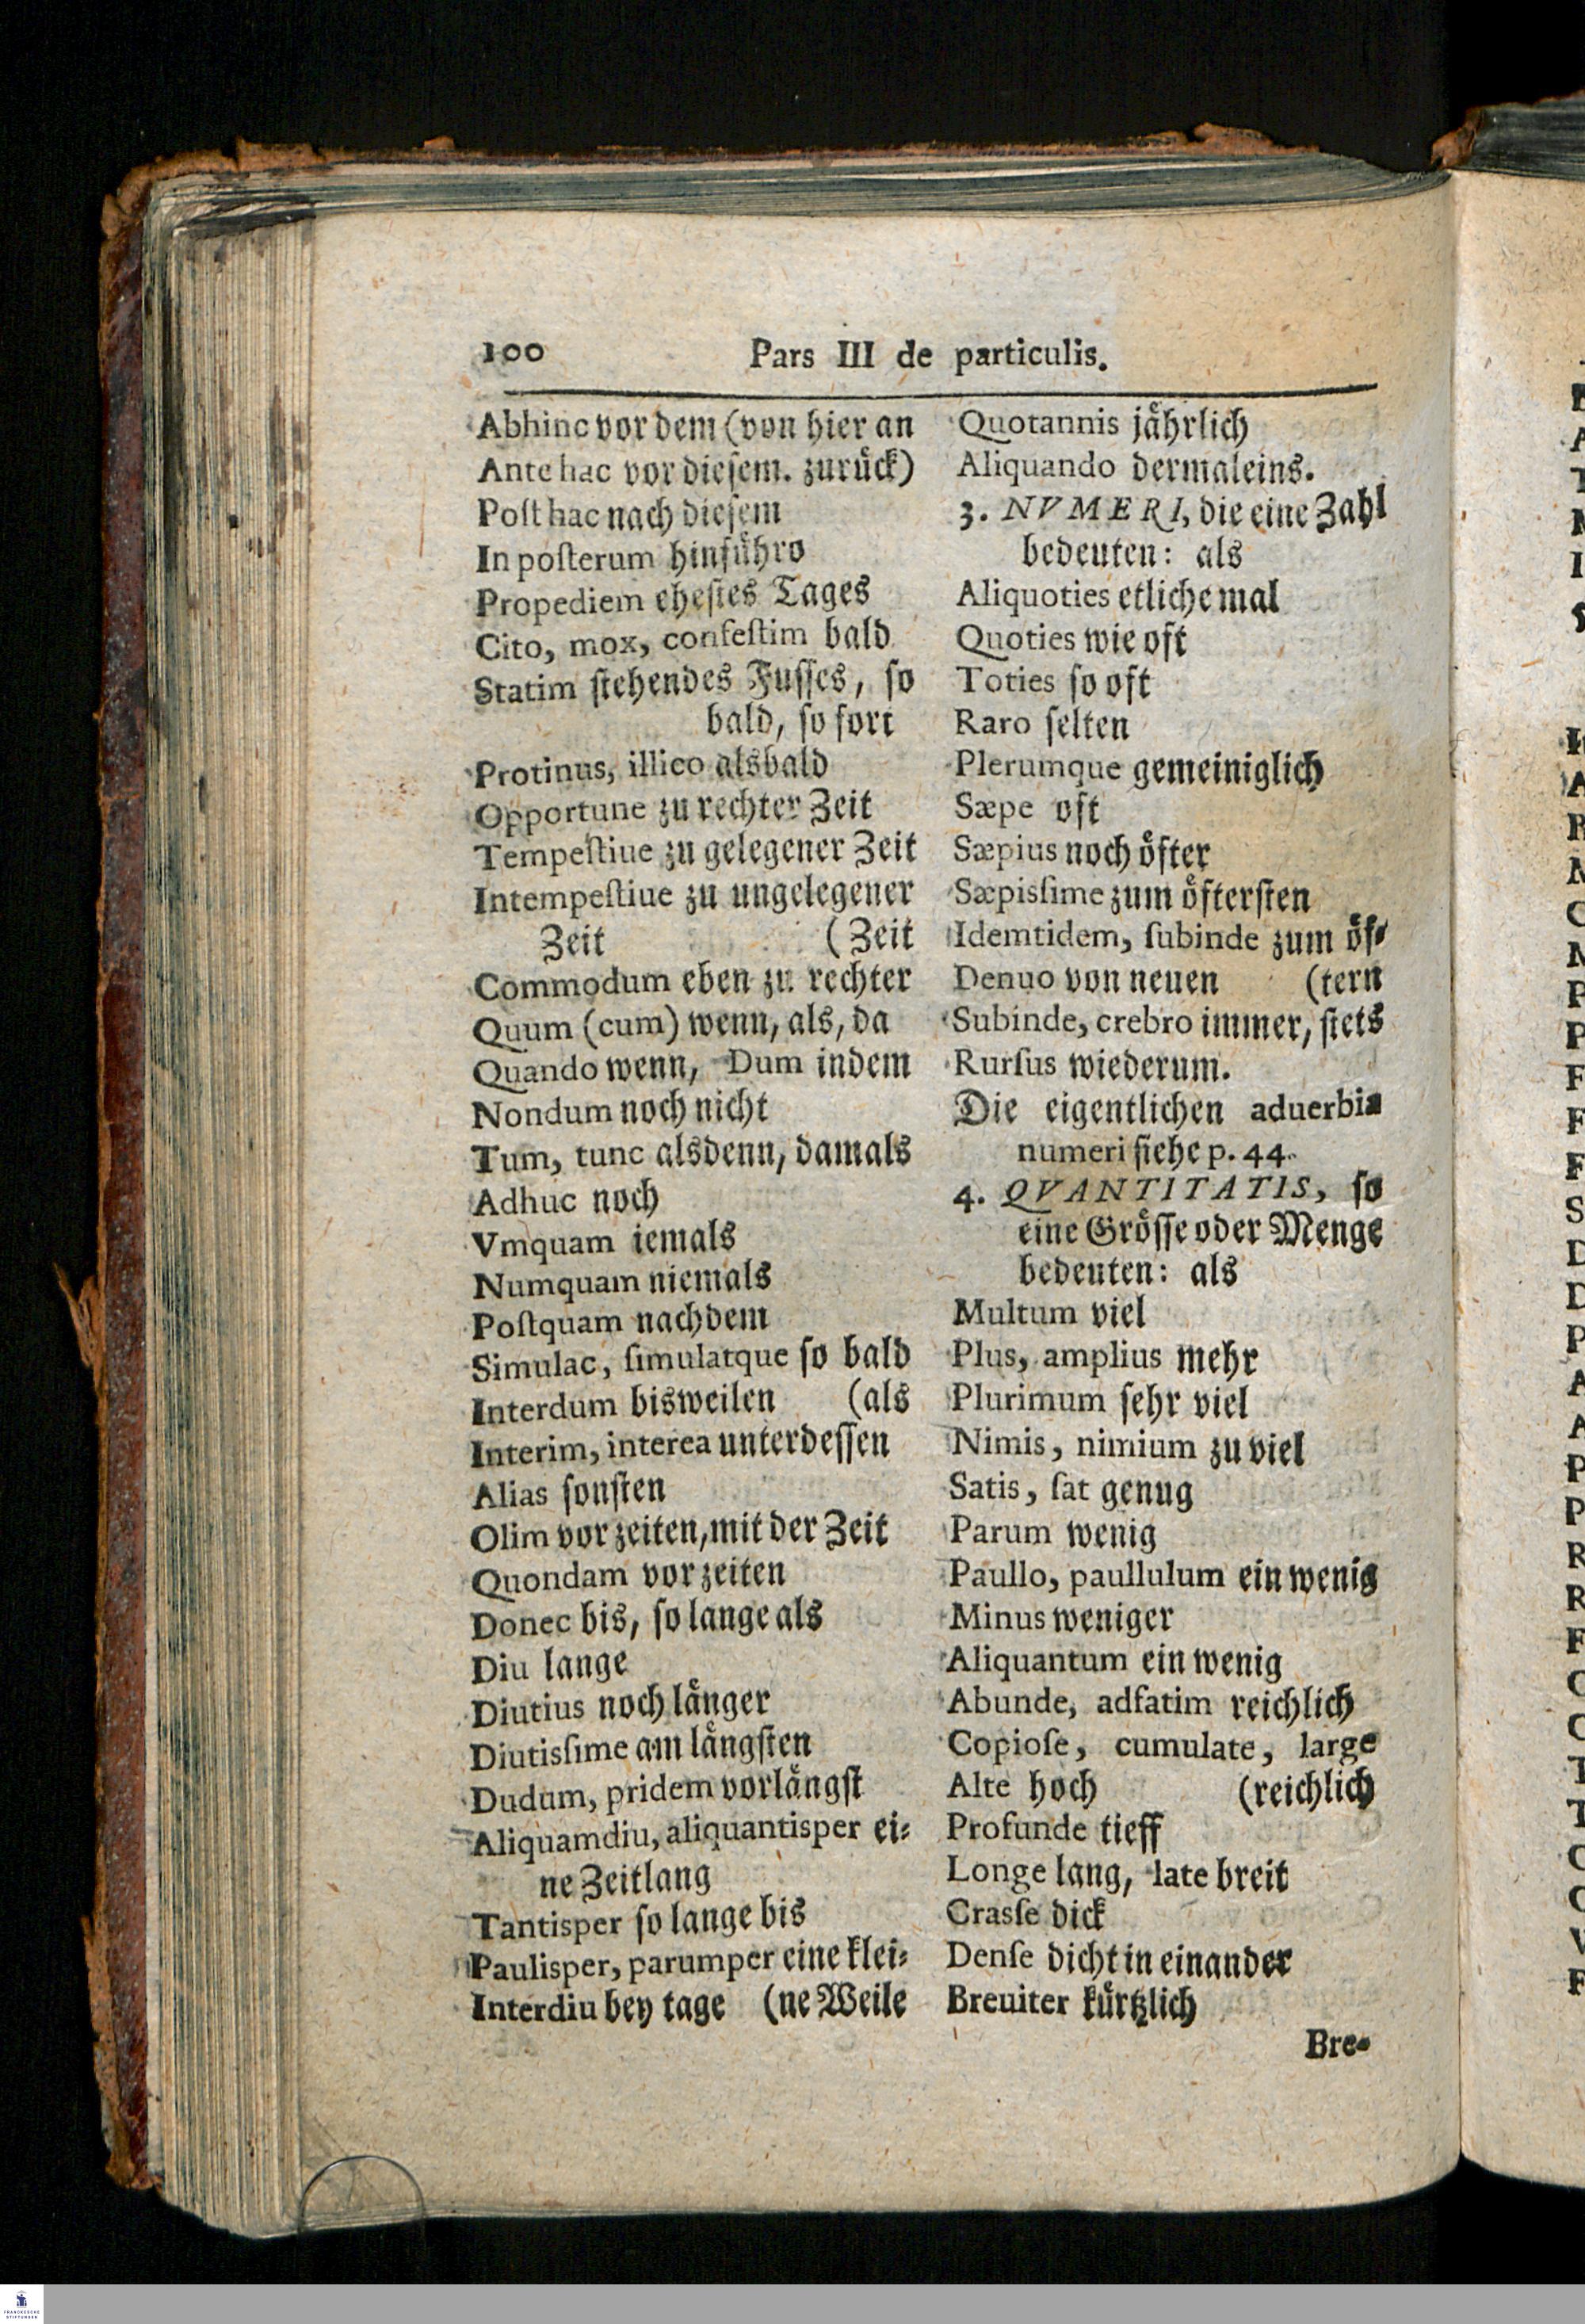 100 Pars III de particulis.
Abhinc vor dem (von hier an
Ante hac vor dieſem. zurück)
Poſt hac nach dieſem
In poſterum hinführo
Propediem eheſtes Tages
Cito, mox, confeſtim bald
Statim ſtehendes Fuſſes, ſo
bald, ſo fort
Protinus, illico alsbald
Opportune zu rechter Zeit
Tempeſtiue zu gelegener Zeit
Intempeſtiue zu ungelegener
Zeit (Zeit
Commodum eben zu rechter
Quum (cum) wenn, als, da
Quando wenn, Dum indem
Nondum noch nicht
Tum, tunc alsdenn, damals
Adhuc noch
Vmquam iemals
Numquam niemals
Poſtquam nachdem
Simulac, ſimulatque ſo bald
Interdum bisweilen (als
Interim, interea unterdeſſen
Alias ſonſten
Olim vor zeiten, mit der Zeit
Quondam vor zeiten
Donec bis, ſo lange als
Diu lange
Diutius noch länger
Diutisſime am längſten
Dudum, pridem vorlängſt
Aliquamdiu, aliquantisper ei⸗
ne Zeitlang
Tantisper ſo lange bis
Paulisper, parumper eine klei⸗
Interdiu bey tage (ne Weile
Quotannis jährlich
Aliquando dermaleins.
3. NVMERI, die eine Zahl
bedeuten: als
Aliquoties etliche mal
Quoties wie oft
Toties ſo oft
Raro ſelten
Plerumque gemeiniglich
Sæpe oft
Sæpius noch öfter
Sæpisſime zum öfterſten
Idemtidem, ſubinde zum öf⸗
Denuo von neuen (tern
Subinde, crebro immer, ſtets
Rurſus wiederum.
Die eigentlichen aduerbia
numeri ſiehe p. 44.
4. QVANTITATIS, ſo
eine Gröſſe oder Menge
bedeuten: als
Multum viel
Plus, amplius mehr
Plurimum ſehr viel
Nimis, nimium zu viel
Satis, ſat genug
Parum wenig
Paullo, paullulum ein wenig
Minus weniger
Aliquantum ein wenig
Abunde, adfatim reichlich
Copioſe, cumulate, large
Alte hoch (reichlich
Profunde tieff
Longe lang, late breit
Crasſe dick
Denſe dicht in einander
Breuiter kürtzlich
Bre-
FRANCKESCHE
STIFTUNGEN